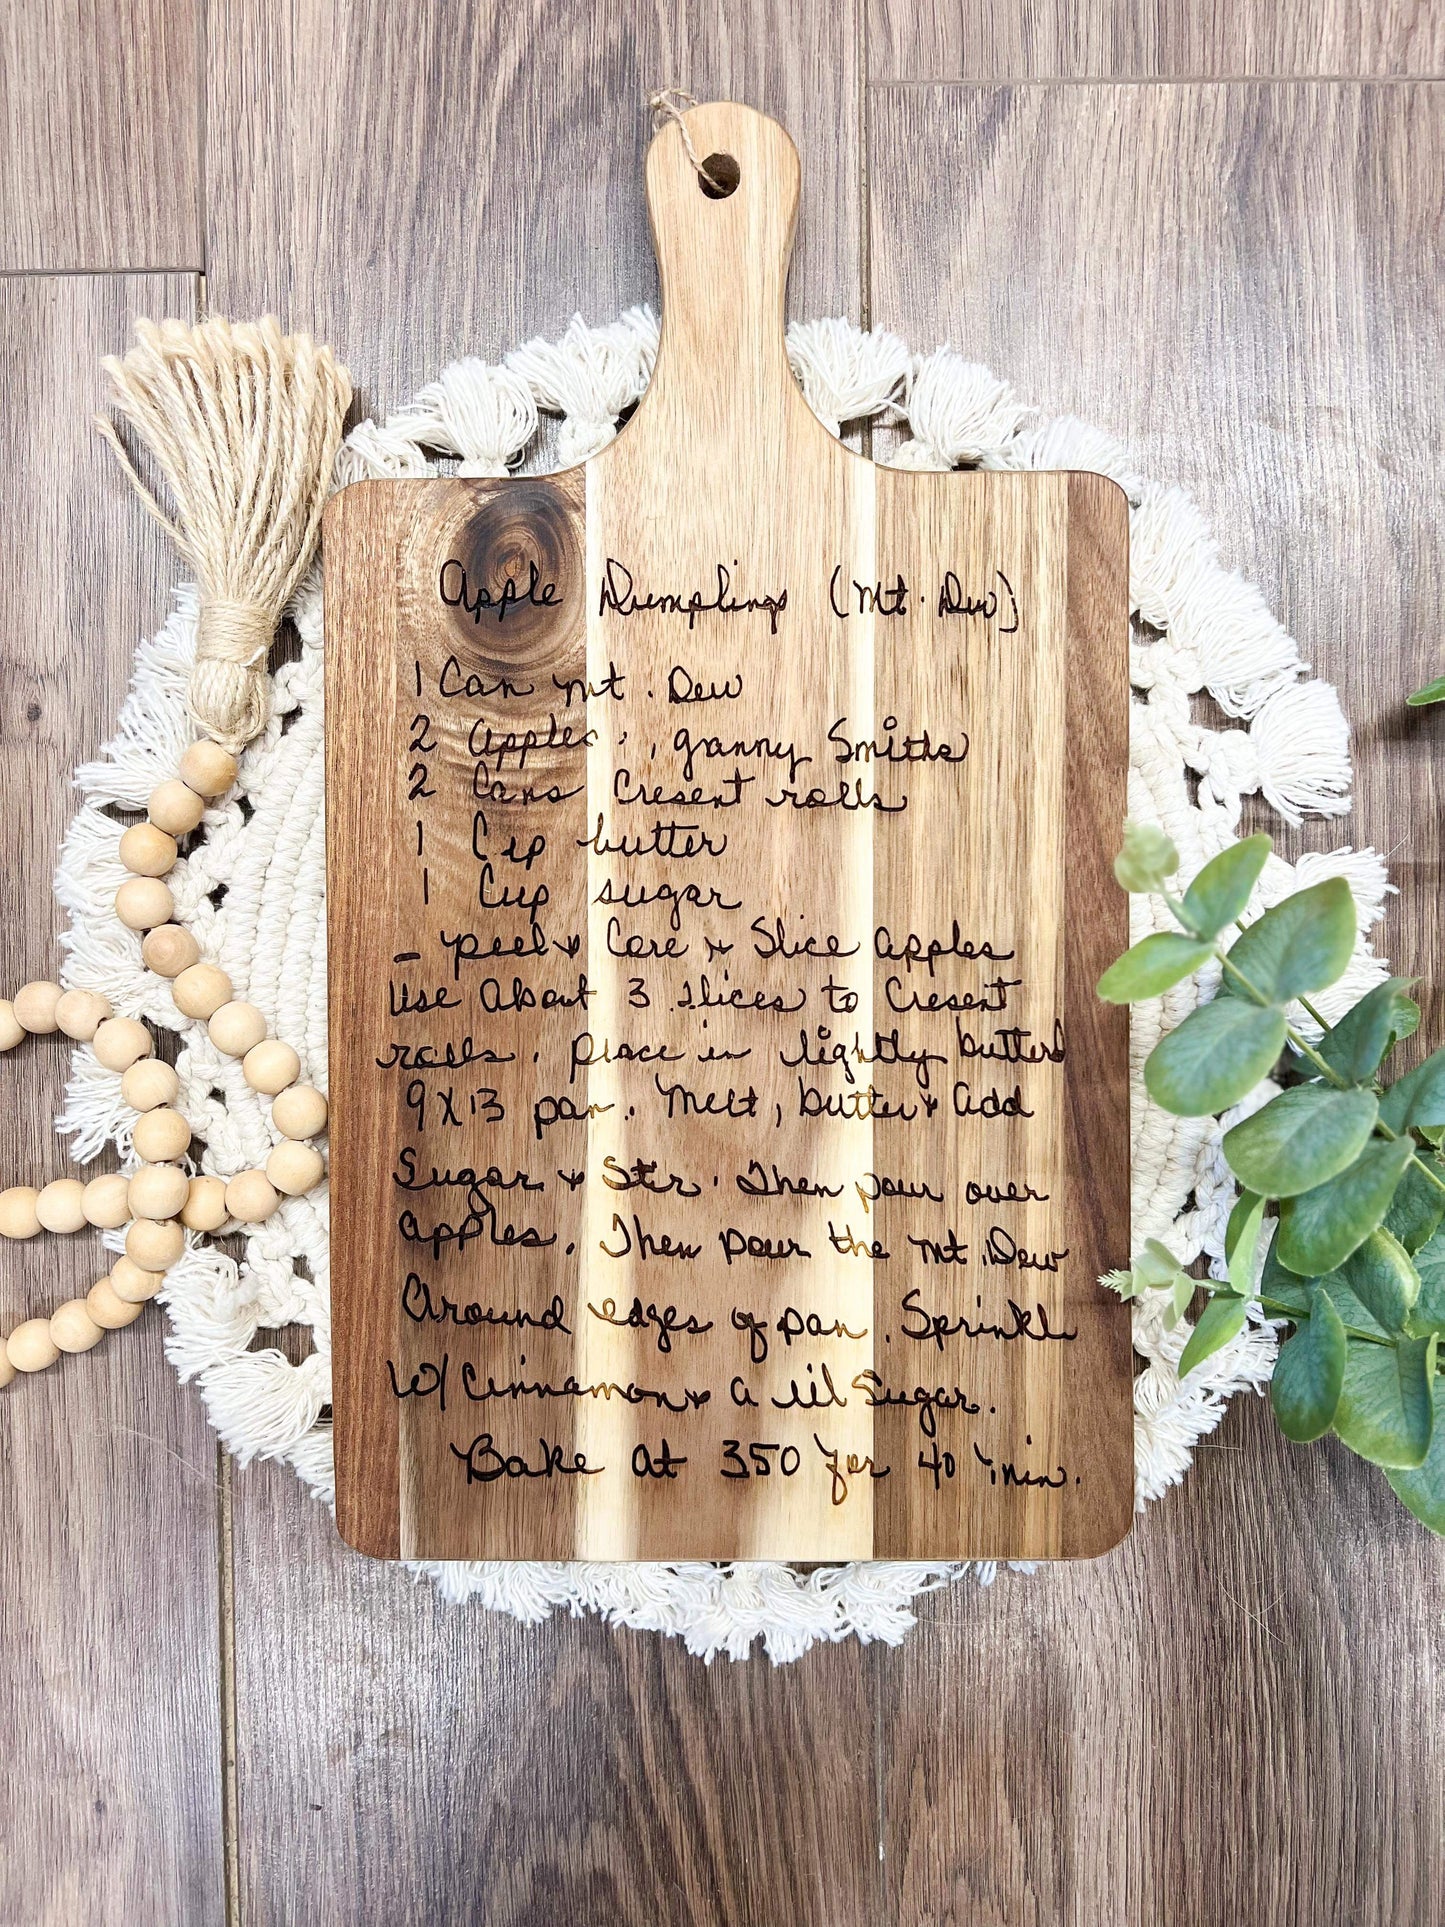 Apple Dumplings (Mt. Dew)
1 Can Mt. Dew
2 Apples, granny Smiths
2 Cans Cresent rolls
1 Cup butter
1 Cup sugar
- peel & Core & Slice apples
Use About 3 slices to Cresent
rolls. place in lightly butterd
9X13 pan. Melt, butter & add
Sugar & Stir. Then pour over
apples. Then pour the Mt. Dew
Around edges of pan. Sprinkle
W/ Cinnamon & a lil Sugar.
Bake at 350 for 40 min.